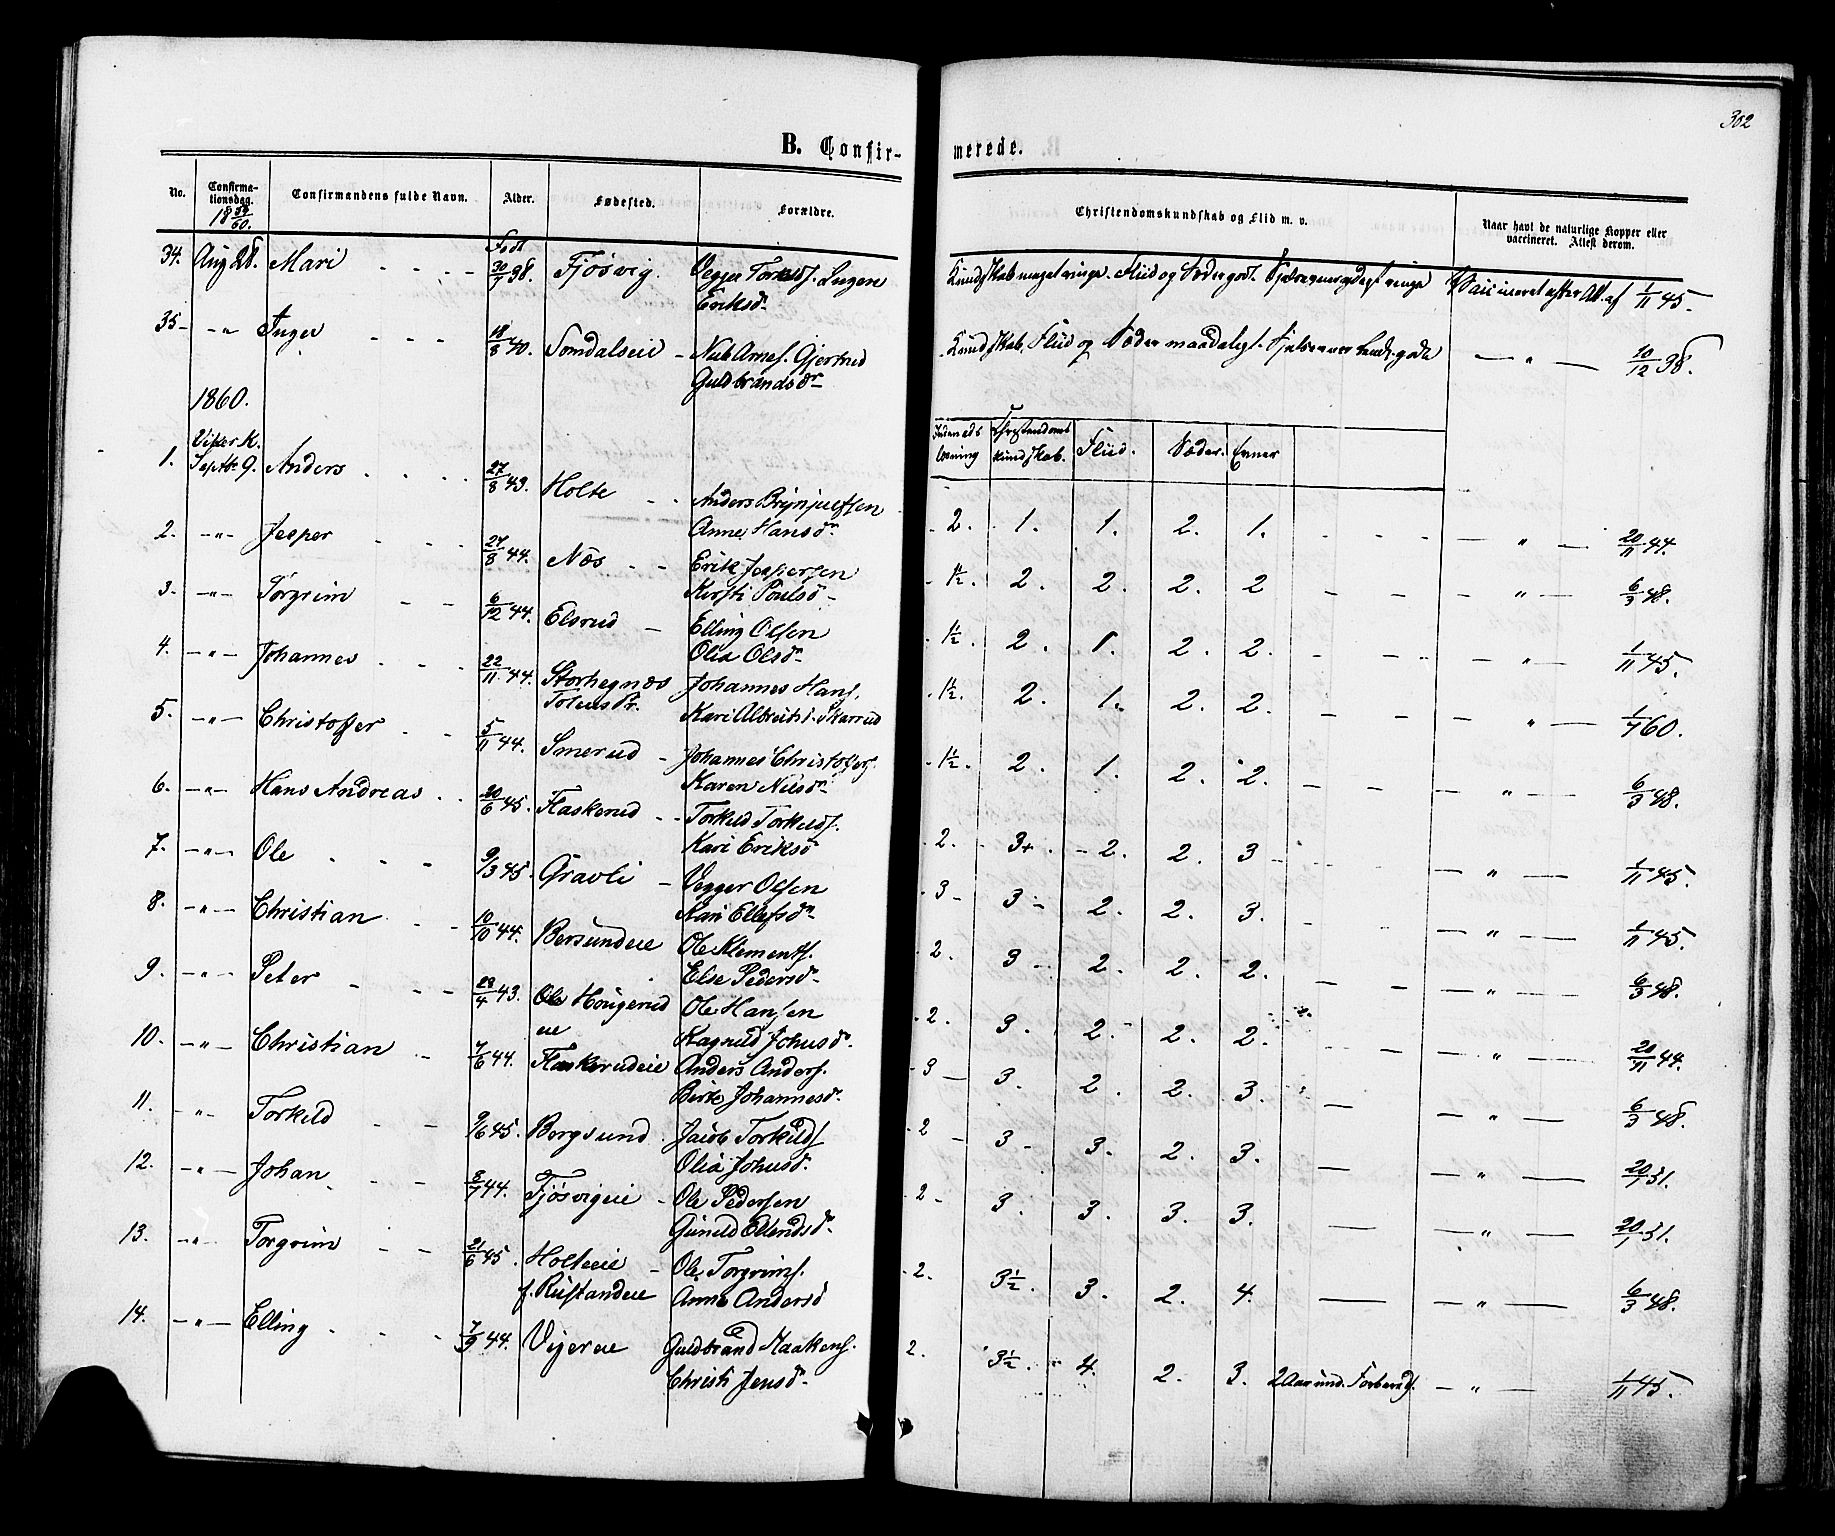 302
B. Confir-
merede.
No.
Confirma-
tionsdag.
1859/60.
Confirmandens fulde Navn.
Alder.
Fødested.
Forældre.
Christendomskundskab og Flid m. v.
Naar havt de naturlige Kopper eller
vaccineret. Attest derom.
Født
34. Aug 28. Mari 30/7 38. Fjøsvig. Vegger Torkelds. Ingen Kundskab meget ringe. Fliid og Sæder godt. Vaccineret efter Att. af 1/11 45.
Eriksd.
35 - " Inger 18/8 40. Somdalseie - Nub Arnes. Gjertrud Kundskab, Fliid og Sæder maadeligt. - " - 10/12 38.
Guldbrandsdr
1860.
Indenads
læsning
Christendoms
kundskab.
Fliid.
Sæder.
Evner
Viker K.
1. Septbr 9. Anders 27/8 43. Holte Anders Brynjulfsen 2. 1. 1. 2. 1. - " - 20/11 44.
Anne Hansdr
2. - " - Jesper 24/8 44. Næs Erik Jespersen 1½. 2. 2. 2. 2 - " - 6/3 48.
Kirsti Poulsd
3. - " - Torgrim 6/12 44. Elsrud - Elling Olsen 1½ 2. 1. 2. 2. - " - 1/11 45.
Olia Olsdr
4. - " - Johannes 22/11 44. Storhegnæs Johannes Hans. 1½. 2. 1. 2. 2. - " - 1/7 60.
Totens Pr. Kari Albrits. Skarrud
5. - " - Christoffer 5/11 44. Smerud - Johannes Christoffers. 1½. 2. 1. 2. 2. - " - 6/3 48.
Karen Nilsdr
6. - " - Hans Andreas 20/6 45. Flaskerud Torkild Torkilds. 2. 3+. 2. 2. 3 - " - 1/11 45.
Kari Eriksd
7. - " - Ole 9/3 45. Gravli - Vegger Olsen 3 3 - 2. 2. 3. - " - 1/11 45.
Kari Ellefsdr
8. - " - Christian 10/10 44. Bersundeie Ole Klements. 2. 3 - 2. 2. 2. - " - 6/3 48.
Else Pedersdr
9. - " - Peter 23/4 43. Ole Hougerud Ole Hansen 2. 3. 2. 2. 2. - " - 20/11 44.
eie Ragnild Johnsdr.
10. - " - Christian 7/6 44. Flaskerudeie Anders Anders. 3 - 3. 2. 2. 3. - " - 6/3 48.
Birte Johannesdr.
11. - " Torkild 9/6 45. Bergsund. Jacob Torkilds 2 - 3 - 3. 2. 3. - " - 20/1 51.
Olia Johnsdr.
12. - " - Johan 8/7 44. Fjøsvigeie - Ole Pedersen 2 - 3. 3. 3. 3. - " - 20/1 51.
Gunild Ellendsdr.
13. - " - Torgrim 21/6 45. Holteeie - Ole Torgrims. 2. 3½. 3. 2. 4. - " - 6/3 48.
f. Rustandeie Anne Andersd
14. - " - Elling 7/9 44. Vigereie Guldbrand Haakens. 2. 3½. 4. 2. 3. 2 Aar und. Forbereds. - " - 1/11 45.
Christi Jensdr.